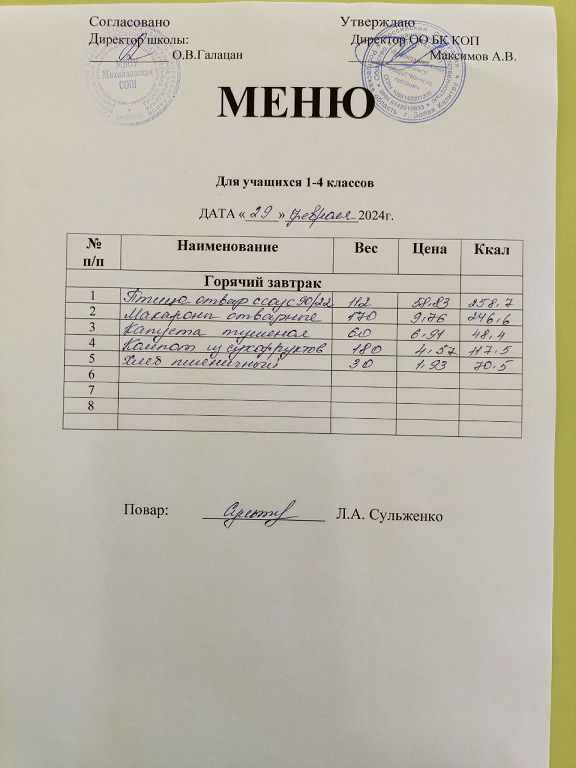 Согласовано Утверждаю
Директор школы: Директор ОО БК КОП
О.В.Галацан Максимов А.В.
МБОУ
Михайловская
СОШ
МЕНЮ
Для учащихся 1-4 классов
ДАТА « 29 » февраля 2024г.
№ п/п Наименование Вес Цена Ккал
Горячий завтрак
1 Птица отвар соус 90/22 112 58.83 258.7
2 Макароны отварные 170 9.76 246.6
3 Капуста тушеная 60 6.91 48.4
4 Компот из сухофруктов 180 4.57 117.5
5 Хлеб пшеничный 30 1.93 70.5
6
7
8
Повар: Л.А. Сульженко